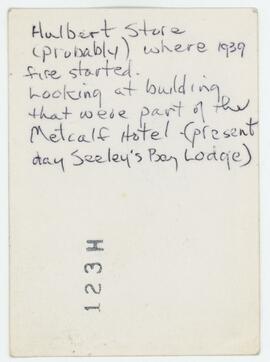 Hulbert Store
(probably) where 1939
fire started.
Looking at building
that were part of the
Metcalf Hotel (present
day Seeley's Bay Lodge)
123H